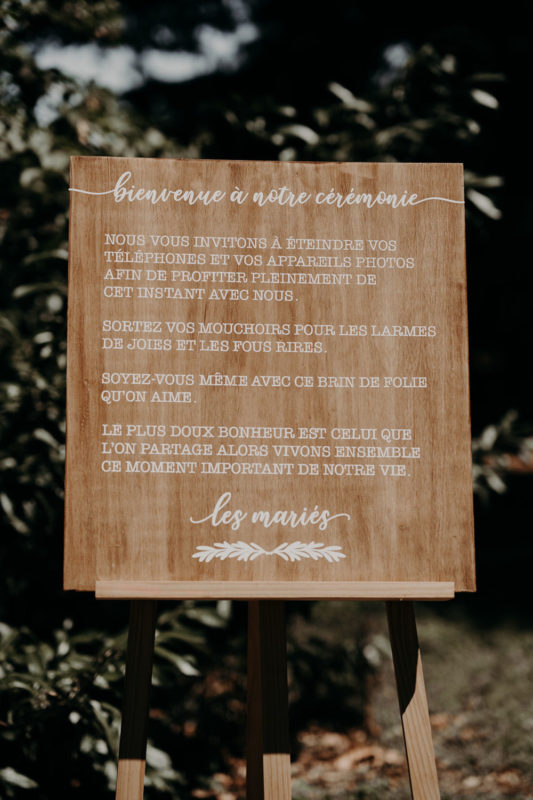 bienvenue à notre cérémonie
NOUS VOUS INVITONS À ÉTEINDRE VOS
TÉLÉPHONES ET VOS APPAREILS PHOTOS
AFIN DE PROFITER PLEINEMENT DE
CET INSTANT AVEC NOUS.
SORTEZ VOS MOUCHOIRS POUR LES LARMES
DE JOIES ET LES FOUS RIRES.
SOYEZ-VOUS MÊME AVEC CE BRIN DE FOLIE
QU'ON AIME.
LE PLUS DOUX BONHEUR EST CELUI QUE
L'ON PARTAGE ALORS VIVONS ENSEMBLE
CE MOMENT IMPORTANT DE NOTRE VIE.
les mariés